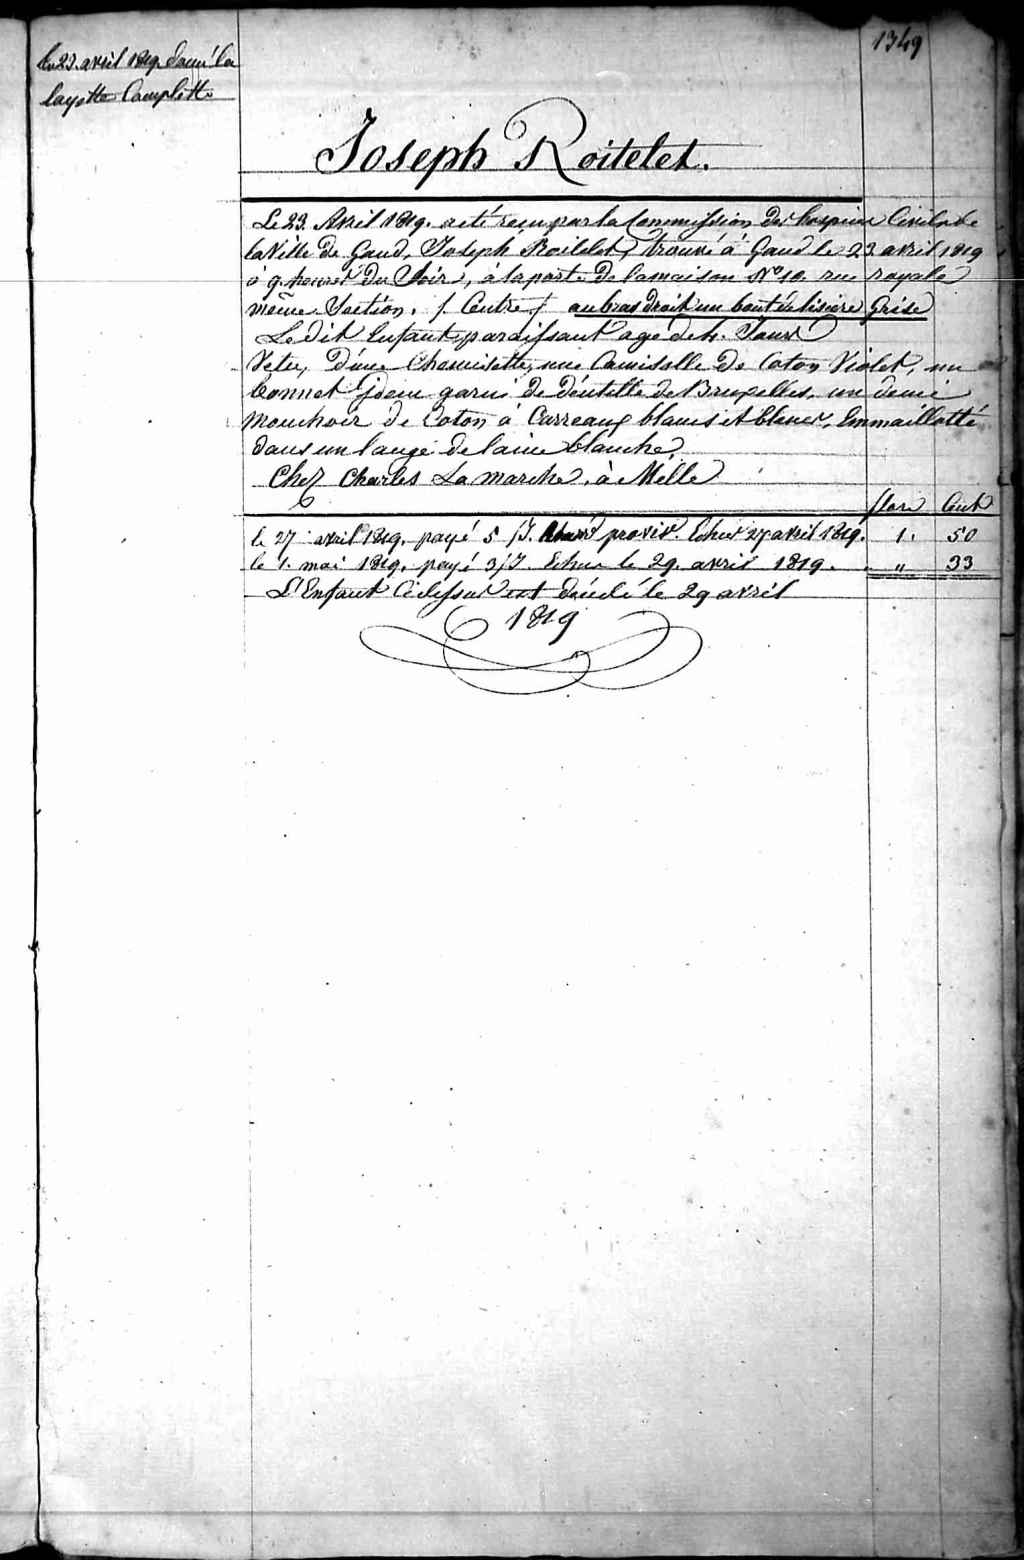 1349
le 23. avril 1819. donné la
layette Complette
Joseph Roitelet.
Le 23. Avril 1819. a été reçu par la Commission des hospices Civils de
la Ville de Gand, Joseph Roitelet, trouvé à Gand le 23 avril 1819
à 9 heures du Soir, à la porte de la maison N° 10. rue royale
même Section. /. Centre / au bras droit un bout de lisière Grise
Le dit Enfant paraissant agé de 4. Jours
Vetu, d'une Chemisette, une Camisolle de Coton Violet, un
bonnet Idem garni de dentelle de Bruxelles, un demi
mouchoir de Coton à Carreaux blancs et bleus, Emmaillotté
dans un lange de laine blanche,
Chez Charles Lamarche, à Melle
flors Cents
le 27 avril 1819. payé 5 /J. provis. Echus 27 avril 1819. 1. 50
le 1. mai 1819. payé 3/J. Echus le 29. avril 1819. " 33
L'Enfant Cidessus est décédé le 29 avril
1819